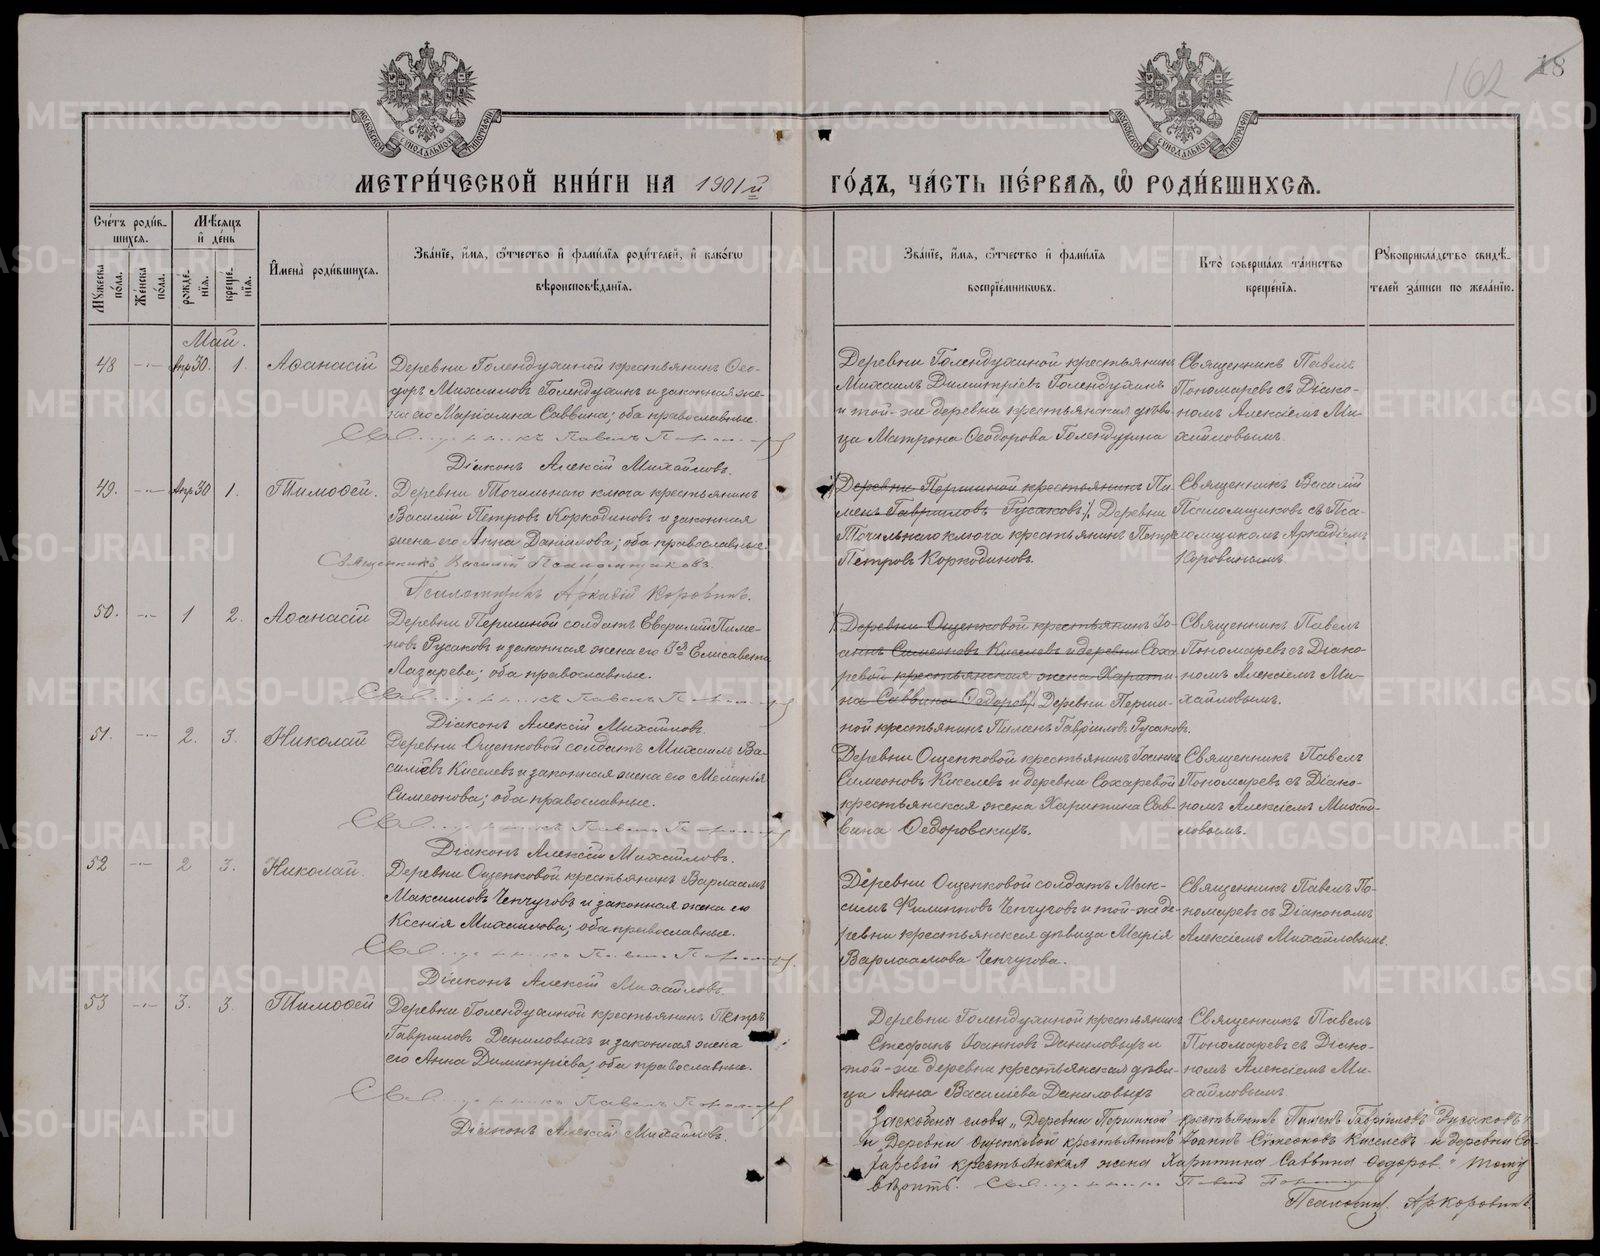 162 18
МЕТРИ́ЧЕСКОЙ КНИ́ГИ НА 1901й ГО́ДЪ, ЧА́СТЬ ПЕ́РВАЯ, Ѽ РОДИ́ВШИХСЯ.
Сче́тъ роди́в-
шихся.
Мѣ́сяцъ
и҆ де́нь
Мꙋжеска по́ла.
Же́нска по́ла.
рожде́нїя.
креще́нїя.
И҆мена̀ роди́вшихся.
Зва́нїе, и҆́мя, ѻ҆́тчество и҆ фами́лїя роди́телей, и҆ како́гѡ
вѣроисповѣ́данїя.
Зва́нїе, и҆́мя, ѻ҆́тчество и҆ фами́лїя
воспрїе́мникѡвъ.
Кто̀ соверша́лъ та́инство
креще́нїя.
Рꙋкоприкла́дство свидѣ́-
телей за́писи по жела́нїю.
Май.
48 -"- Апр 30. 1. Аѳанасій
Деревни Голендухиной крестьянинъ Ѳео-
доръ Михаиловъ Голендухинъ и законная же-
на его Марiамна Саввина; оба православные.
Священникъ Павелъ Пономаревъ
Дiаконъ Алексiй Михайловъ.
Деревни Голендухиной крестьянинъ
Михаилъ Димитрiевъ Голендухинъ
и той-же деревни крестьянская дѣви-
ца Матрона Ѳеодорова Голендухина
Священникъ Павелъ
Пономаревъ съ Дiако-
номъ Алексiемъ Ми-
хайловымъ.
49. -"- Апр 30 1. Тимоѳей.
Деревни Точильнаго ключа крестьянинъ
Василiй Петровъ Коркодиновъ и законная
жена его Анна Данiилова; оба православные.
Священникъ Василiй Псаломщиковъ.
Псаломщикъ Аркадiй Коровинъ.
Деревни Першиной крестьянинъ Пи-
менъ Гаврiиловъ Русаковъ. Деревни
Точильнаго ключа крестьянинъ Петръ
Петровъ Коркодиновъ.
Священникъ Василiй
Псаломщиковъ съ Пса-
ломщикомъ Аркадiемъ
Коровинымъ.
50. -"- 1 2. Аѳанасiй
Деревни Першиной солдатъ Евфимiй Пиме-
новъ Русаковъ и законная жена его Елисавета
Лазарева; оба православные.
Священникъ Павелъ Пономаревъ
Дiаконъ Алексiй Михайловъ.
Деревни Ощепковой крестьянинъ Iо-
аннъ Симеоновъ Киселевъ и деревни Соха-
ревой крестьянская жена Харити-
на Саввина Ѳедоров. Деревни Перши-
ной крестьянинъ Пименъ Гаврiиловъ Русаковъ.
Священникъ Павелъ
Пономаревъ съ Дiако-
номъ Алексiемъ Ми-
хайловымъ.
51. -"- 2. 3. Николай
Деревни Ощепковой солдатъ Михаилъ Ва-
силiевъ Киселевъ и законная жена его Меланiя
Симеонова; оба православные.
Священникъ Павелъ Пономаревъ
Дiаконъ Алексiй Михайловъ.
Деревни Ощепковой крестьянинъ Iоаннъ
Симеоновъ Киселевъ и деревни Сохаревой
крестьянская жена Харитина Сав-
вина Ѳедоровскихъ.
Священникъ Павелъ
Пономаревъ съ Дiако-
номъ Алексiемъ Михай-
ловымъ.
52 -"- 2 3. Николай.
Деревни Ощепковой крестьянинъ Варлаамъ
Максимовъ Чепчуговъ и законная жена его
Ксенiя Михаилова; оба православные.
Священникъ Павелъ Пономаревъ
Дiаконъ Алексiй Михайловъ
Деревни Ощепковой солдатъ Мак-
симъ Филипповъ Чепчуговъ и той-же де-
ревни крестьянская дѣвица Марiя
Варлаамова Чепчугова.
Священникъ Павелъ По-
номаревъ съ Дiакономъ
Алексiемъ Михайловымъ.
53 -"- 3. 3. Тимоѳей
Деревни Голендухиной крестьянинъ Петръ
Гаврiиловъ Даниловыхъ и законная жена
его Анна Димитрiева; оба православные.
Священникъ Павелъ Пономаревъ
Дiаконъ Алексiй Михайловъ.
Деревни Голендухиной крестьянинъ
Стефанъ Iоанновъ Даниловыхъ и
той-же деревни крестьянская дѣви-
ца Анна Василiева Даниловыхъ
Священникъ Павелъ
Пономаревъ съ Дiако-
номъ Алексiемъ Ми-
хайловымъ
Заскоблена слова „Деревни Першиной крестьянинъ Пименъ Гаврiиловъ Русаковъ"
и „Деревни Ощепковой крестьянинъ Iоаннъ Симеоновъ Киселевъ и деревни Со-
харевой крестьянская жена Харитина Саввина Ѳедоров." тому
вѣрить. Священникъ Павелъ Пономаревъ
Псаломщ. Ар. Коровинъ.
METRIKI.GASO-URAL.RU